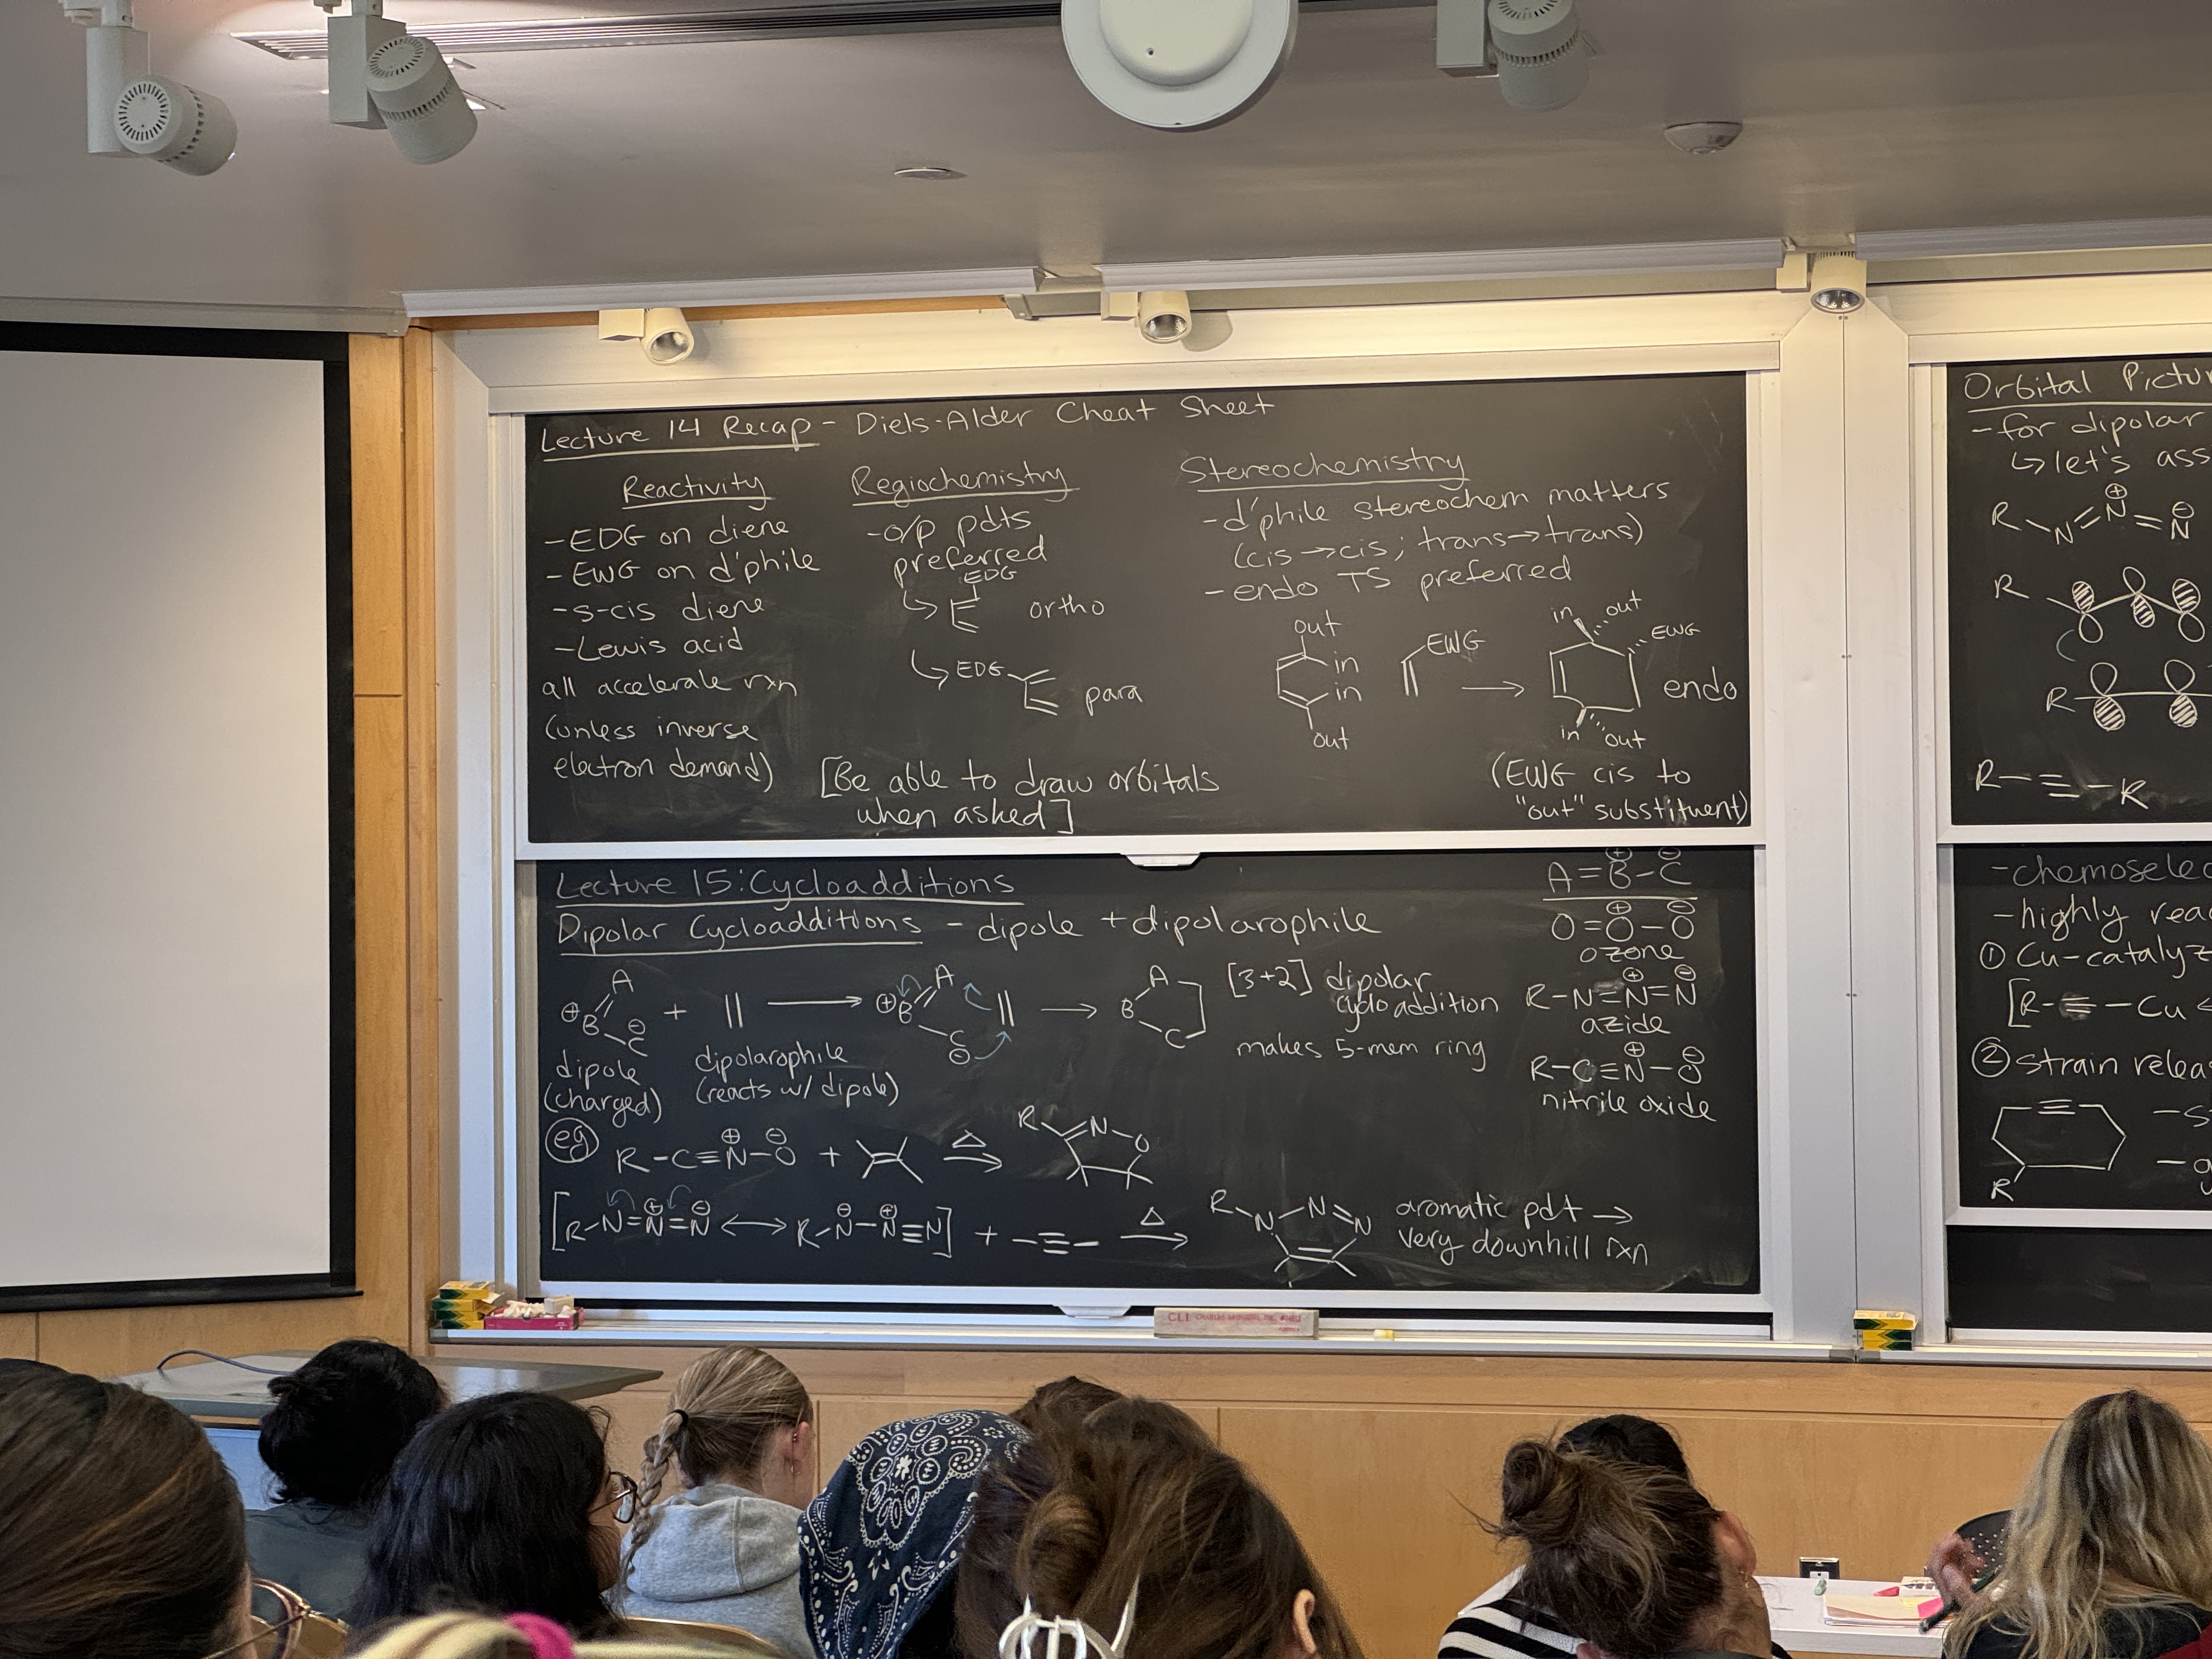 Lecture 14 Recap - Diels-Alder Cheat Sheet
Reactivity
-EDG on diene
-EWG on d'phile
-s-cis diene
-Lewis acid
all accelerate rxn
(unless inverse
electron demand)
Regiochemistry
-o/p pdts
preferred
EDG
ortho
EDG
para
[Be able to draw orbitals
when asked]
Stereochemistry
-d'phile stereochem matters
(cis→cis; trans→trans)
-endo TS preferred
out
in
in
out
EWG
in out
EWG
endo
in out
(EWG cis to
"out" substituent)
Lecture 15: Cycloadditions
Dipolar Cycloadditions - dipole + dipolarophile
A
⊕B
⊖
C
+
dipole
(charged)
dipolarophile
(reacts w/ dipole)
A
⊕B
C
⊖
A
B
C
[3+2] dipolar
cycloaddition
makes 5-mem ring
⊕ ⊖
A=B-C
⊕ ⊖
O=O-O
ozone
⊕ ⊖
R-N=N=N
azide
⊕ ⊖
R-C≡N-O
nitrile oxide
eg
⊕ ⊖
R-C≡N-O +
Δ
R
N-O
⊕ ⊖ ⊖ ⊕
[R-N=N=N ↔ R-N-N≡N] + -≡-
Δ
R-N-N=N
aromatic pdt →
very downhill rxn
Orbital
-for dipolar
↳let's
⊕ ⊖
R-N=N=N
R
R
R-≡-R
-highly
① 
[R-≡-Cu
② strain
R
CLI